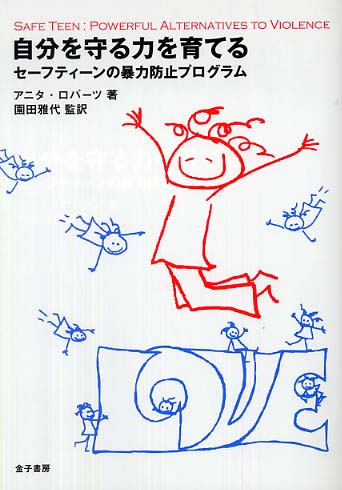 SAFE TEEN: POWERFUL ALTERNATIVES TO VIOLENCE
自分を守る力を育てる
セーフティーンの暴力防止プログラム
アニタ・ロバーツ 著
園田雅代 監訳
LOVE
金子書房